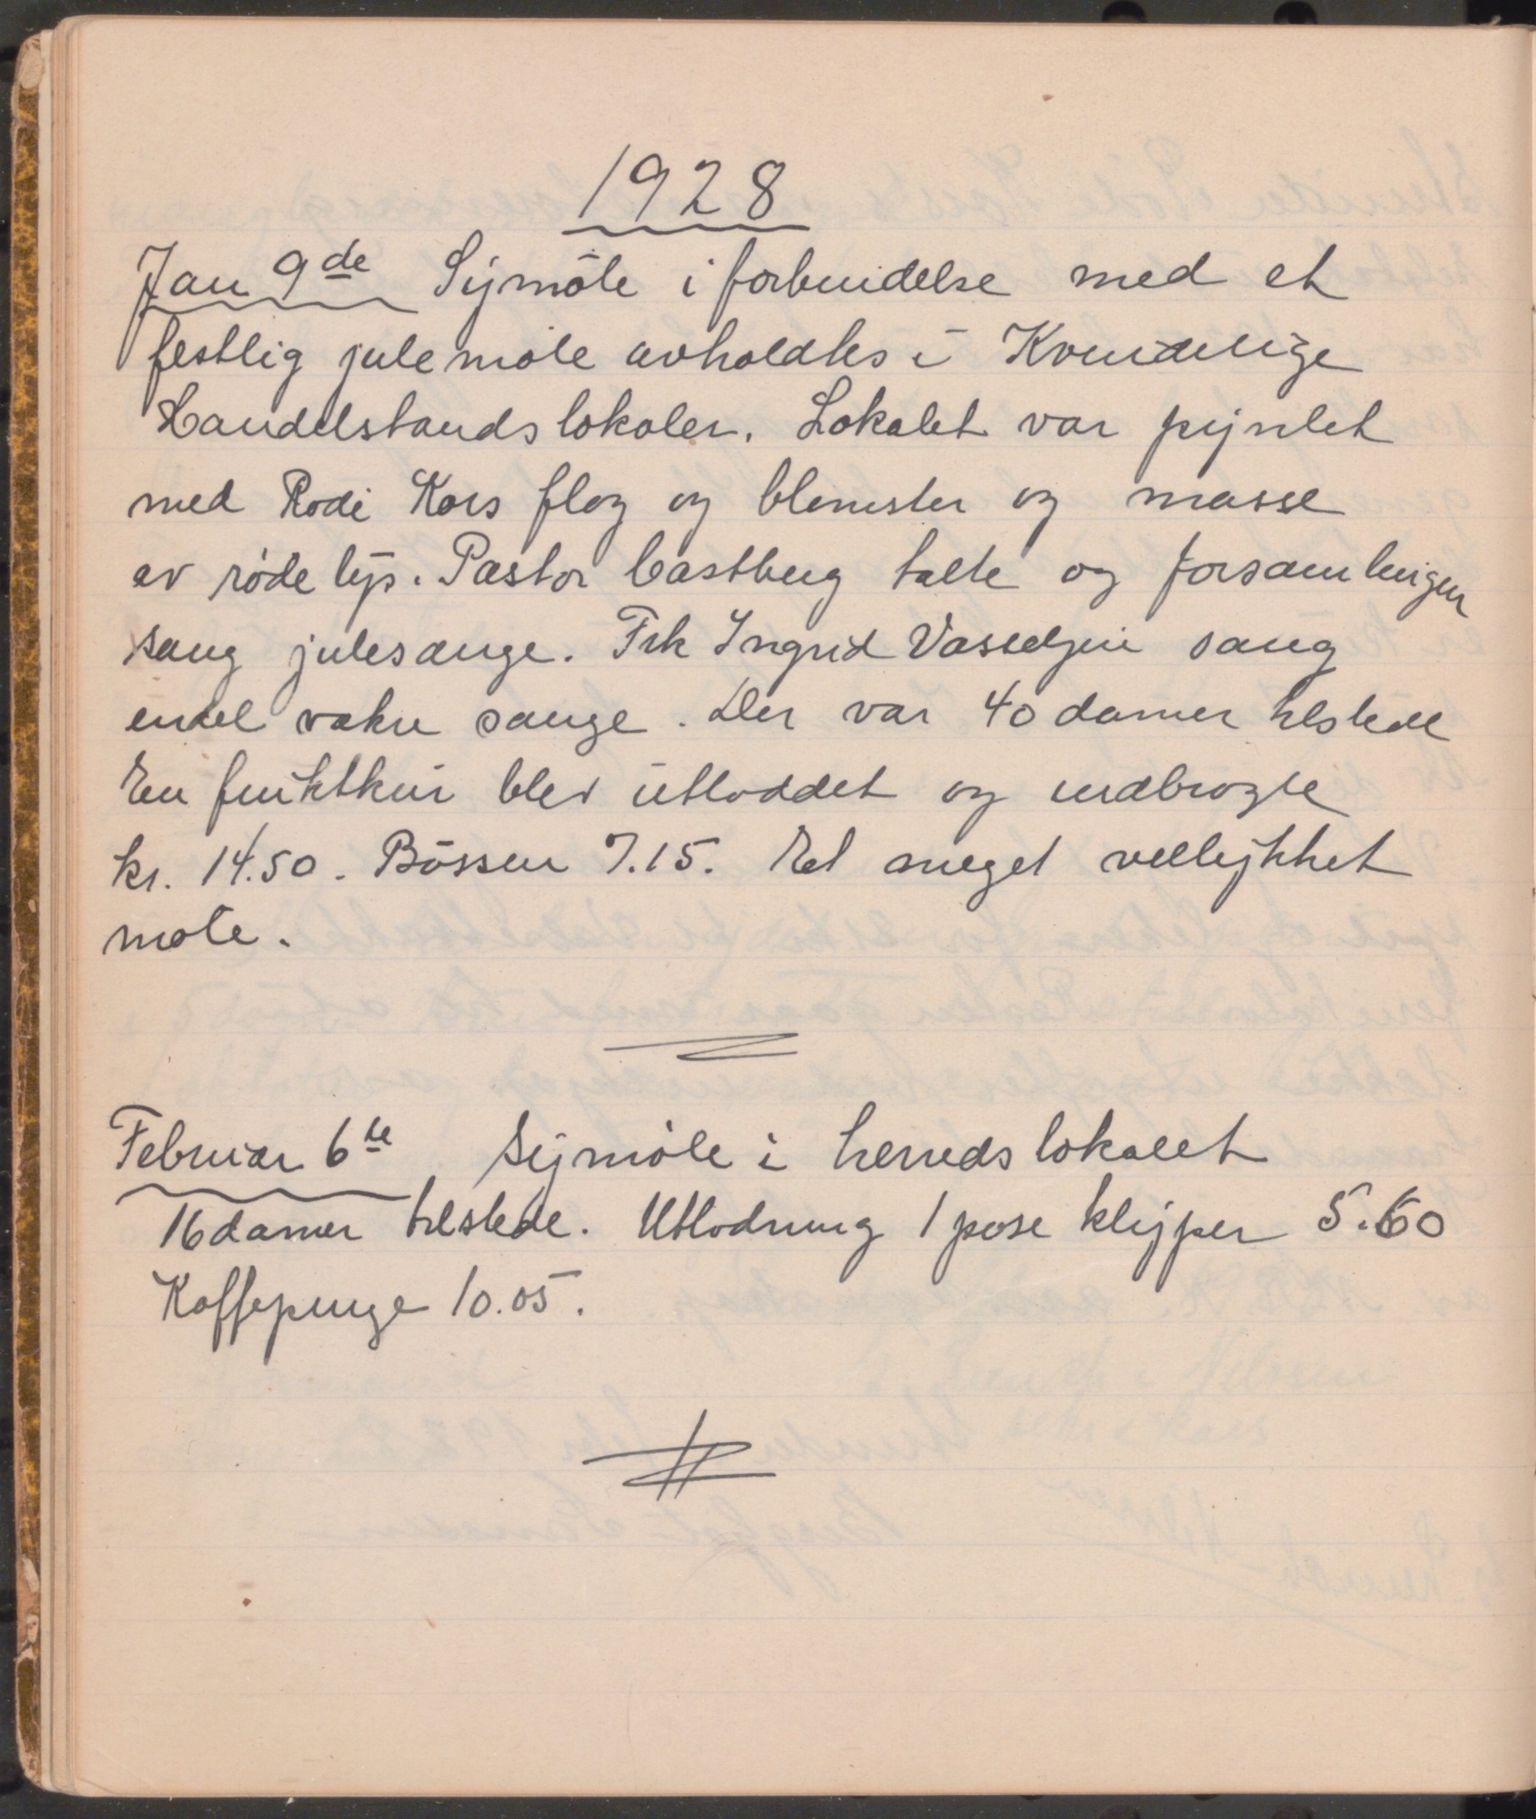 1928
Jan 9de Symöte i forbindelse med et
festlig julemöte avholdtes i Kvindelige
Handelstands lokaler. Lokalet var pyntet
med Röde Kors flag og blomster og masse
av røde lys. Pastor Castberg talte og forsamlingen
sang julesange. Frk Ingrid Vasseljen sang
endel vakre sange. Der var 40 damer tilstede
En fruktkurv blev utloddet og indbragte
kr. 14.50. Bössen 7.15. Et meget vellykket
möte.
Februar 6te Symöte i herreds lokalet
16 damer tilstede. Utlodning 1 pose klyper 5.60
Kaffepenge 10.05.